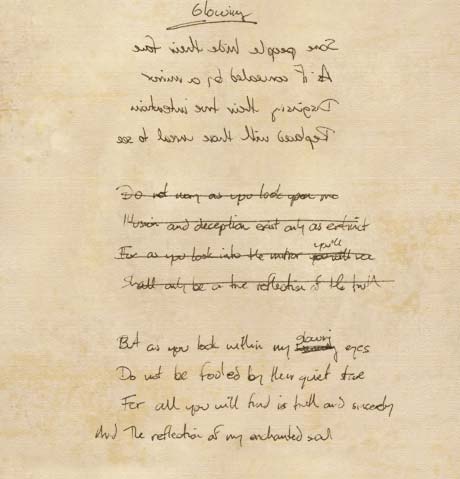 Glowing
Some people hide their face
As if concealed by a mirror
Disguising their true intention
Replaced with those unreal to see
Do not worry as you look upon me
Illusion and deception exist only as extinct
For as you look into the mirror you'll see
Shall only be a true reflection of the truth
But as you look within my glowing eyes
Do not be fooled by their quiet
For all you will find is truth and sincerity
And The reflection of my enchanted soul